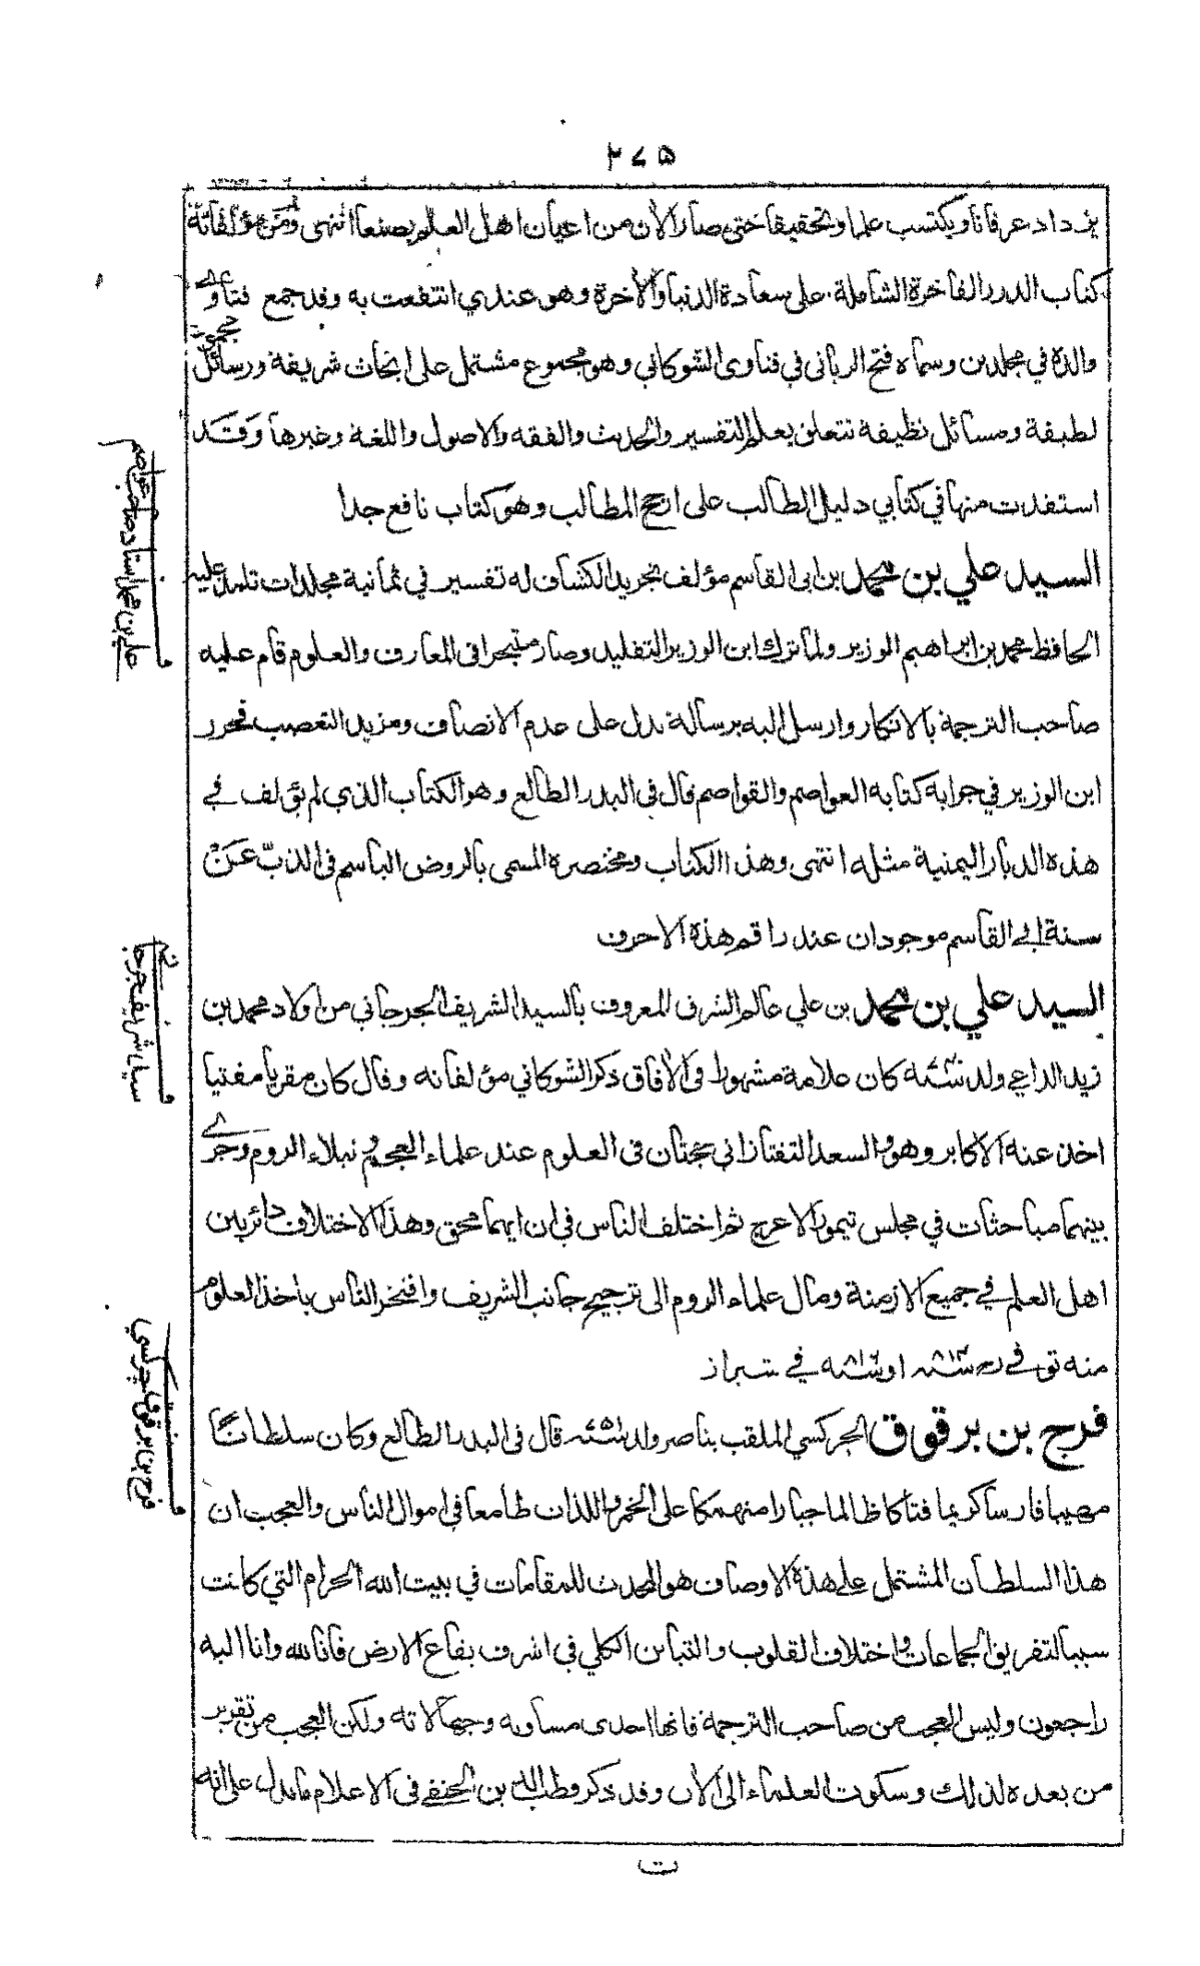 ٢٧٥
يزداد عرفانا ويكتسب علما وتحقيقا حتى صار الأن من اعيان اهل العلم بصنعا انتهى ومن مؤلفاته
كتاب الدرر الفاخرة الشاملة على سعادة الدنيا والأخرة وهو عندي انتفعت به وقد جمع فتاوے
والده في مجلدين وسماه فتح الرباني في فتاوى الشوكاني وهو مجموع مشتمل على ابحاث شريفة ورسائل
لطيفة ومسائل نظيفة تتعلق بعلم التفسير والحديث والفقه والاصول واللغة وغيرها وقد
استفدت منها في كتابي دليل الطالب على ارجح المطالب وهو كتاب نافع جدا
السيد علي بن محمد بن ابى القاسم مؤلف تجريد الكشاف له تفسير في ثمانية مجلدات تلمذ عليه
الحافظ محمد بن ابراهيم الوزير ولما ترك ابن الوزير التقليد وصار متبحرا فى المعارف والعلوم قام عليه
صاحب الترجمة بالانكار وارسل اليه برسالة تدل على عدم الانصاف ومزيد التعصب فحرر
ابن الوزير في جوابه كتابه العواصم والقواصم قال فى البدر الطالع وهو الكتاب الذي لم يؤلف في
هذه الديار اليمنية مثله انتهى وهذا الكتاب ومختصره المسمى بالروض الباسم فى الذبّ عن
سنة ابى القاسم موجودان عند راقم هذه الاحرف
السيد علي بن محمد بن علي عالم الشرق المعروف بالسيد الشريف الجرجاني من اولاد محمد بن
زيد الداعي ولد سنة كان علامة مشهورا فى الأفاق ذكر الشوكاني مؤلفاته وقال كان مقريا مفتيا
اخذ عنه الاكابر وهو والسعد التفتازاني حجتان فى العلوم عند علماء العجم ونبلاء الروم وجرے
بينهما مباحثات في مجلس تيمور الاعرج ثم اختلف الناس في ان ايهما محق وهذا الاختلاف دائر بين
اهل العلم في جميع الازمنة ومال علماء الروم الى ترجيح جانب الشريف وافتخر الناس باخذ العلوم
منه توفي رح سنة ٨١٤ او سنة ٨١٦ في شيراز
فرج بن برقوق الجركسي الملقب بناصر ولد سنة قال فى البدر الطالع وكان سلطانا
مهيبا فارسا كريما فتاكا ظالما جبارا منهمكا على الخمر واللذات طامعا في اموال الناس والعجب ان
هذا السلطان المشتمل على هذه الاوصاف هو المحدث للمقامات في بيت الله الحرام التي كانت
سببا لتفريق الجماعات واختلاف القلوب والتباين الكلي في اشرف بقاع الارض فانا لله وانا اليه
راجعون وليس العجب من صاحب الترجمة فانها احدى مساويه وجهالاته ولكن العجب من تقرير
من بعده لذلك وسكوت العلماء الى الأن وقد ذكر قطب الدين الحنفي فى الاعلام ما يدل على انه
علي بن محمد استاد صاحب عواصم
سيد شريف جرجاني
فرج بن برقوق چركسي